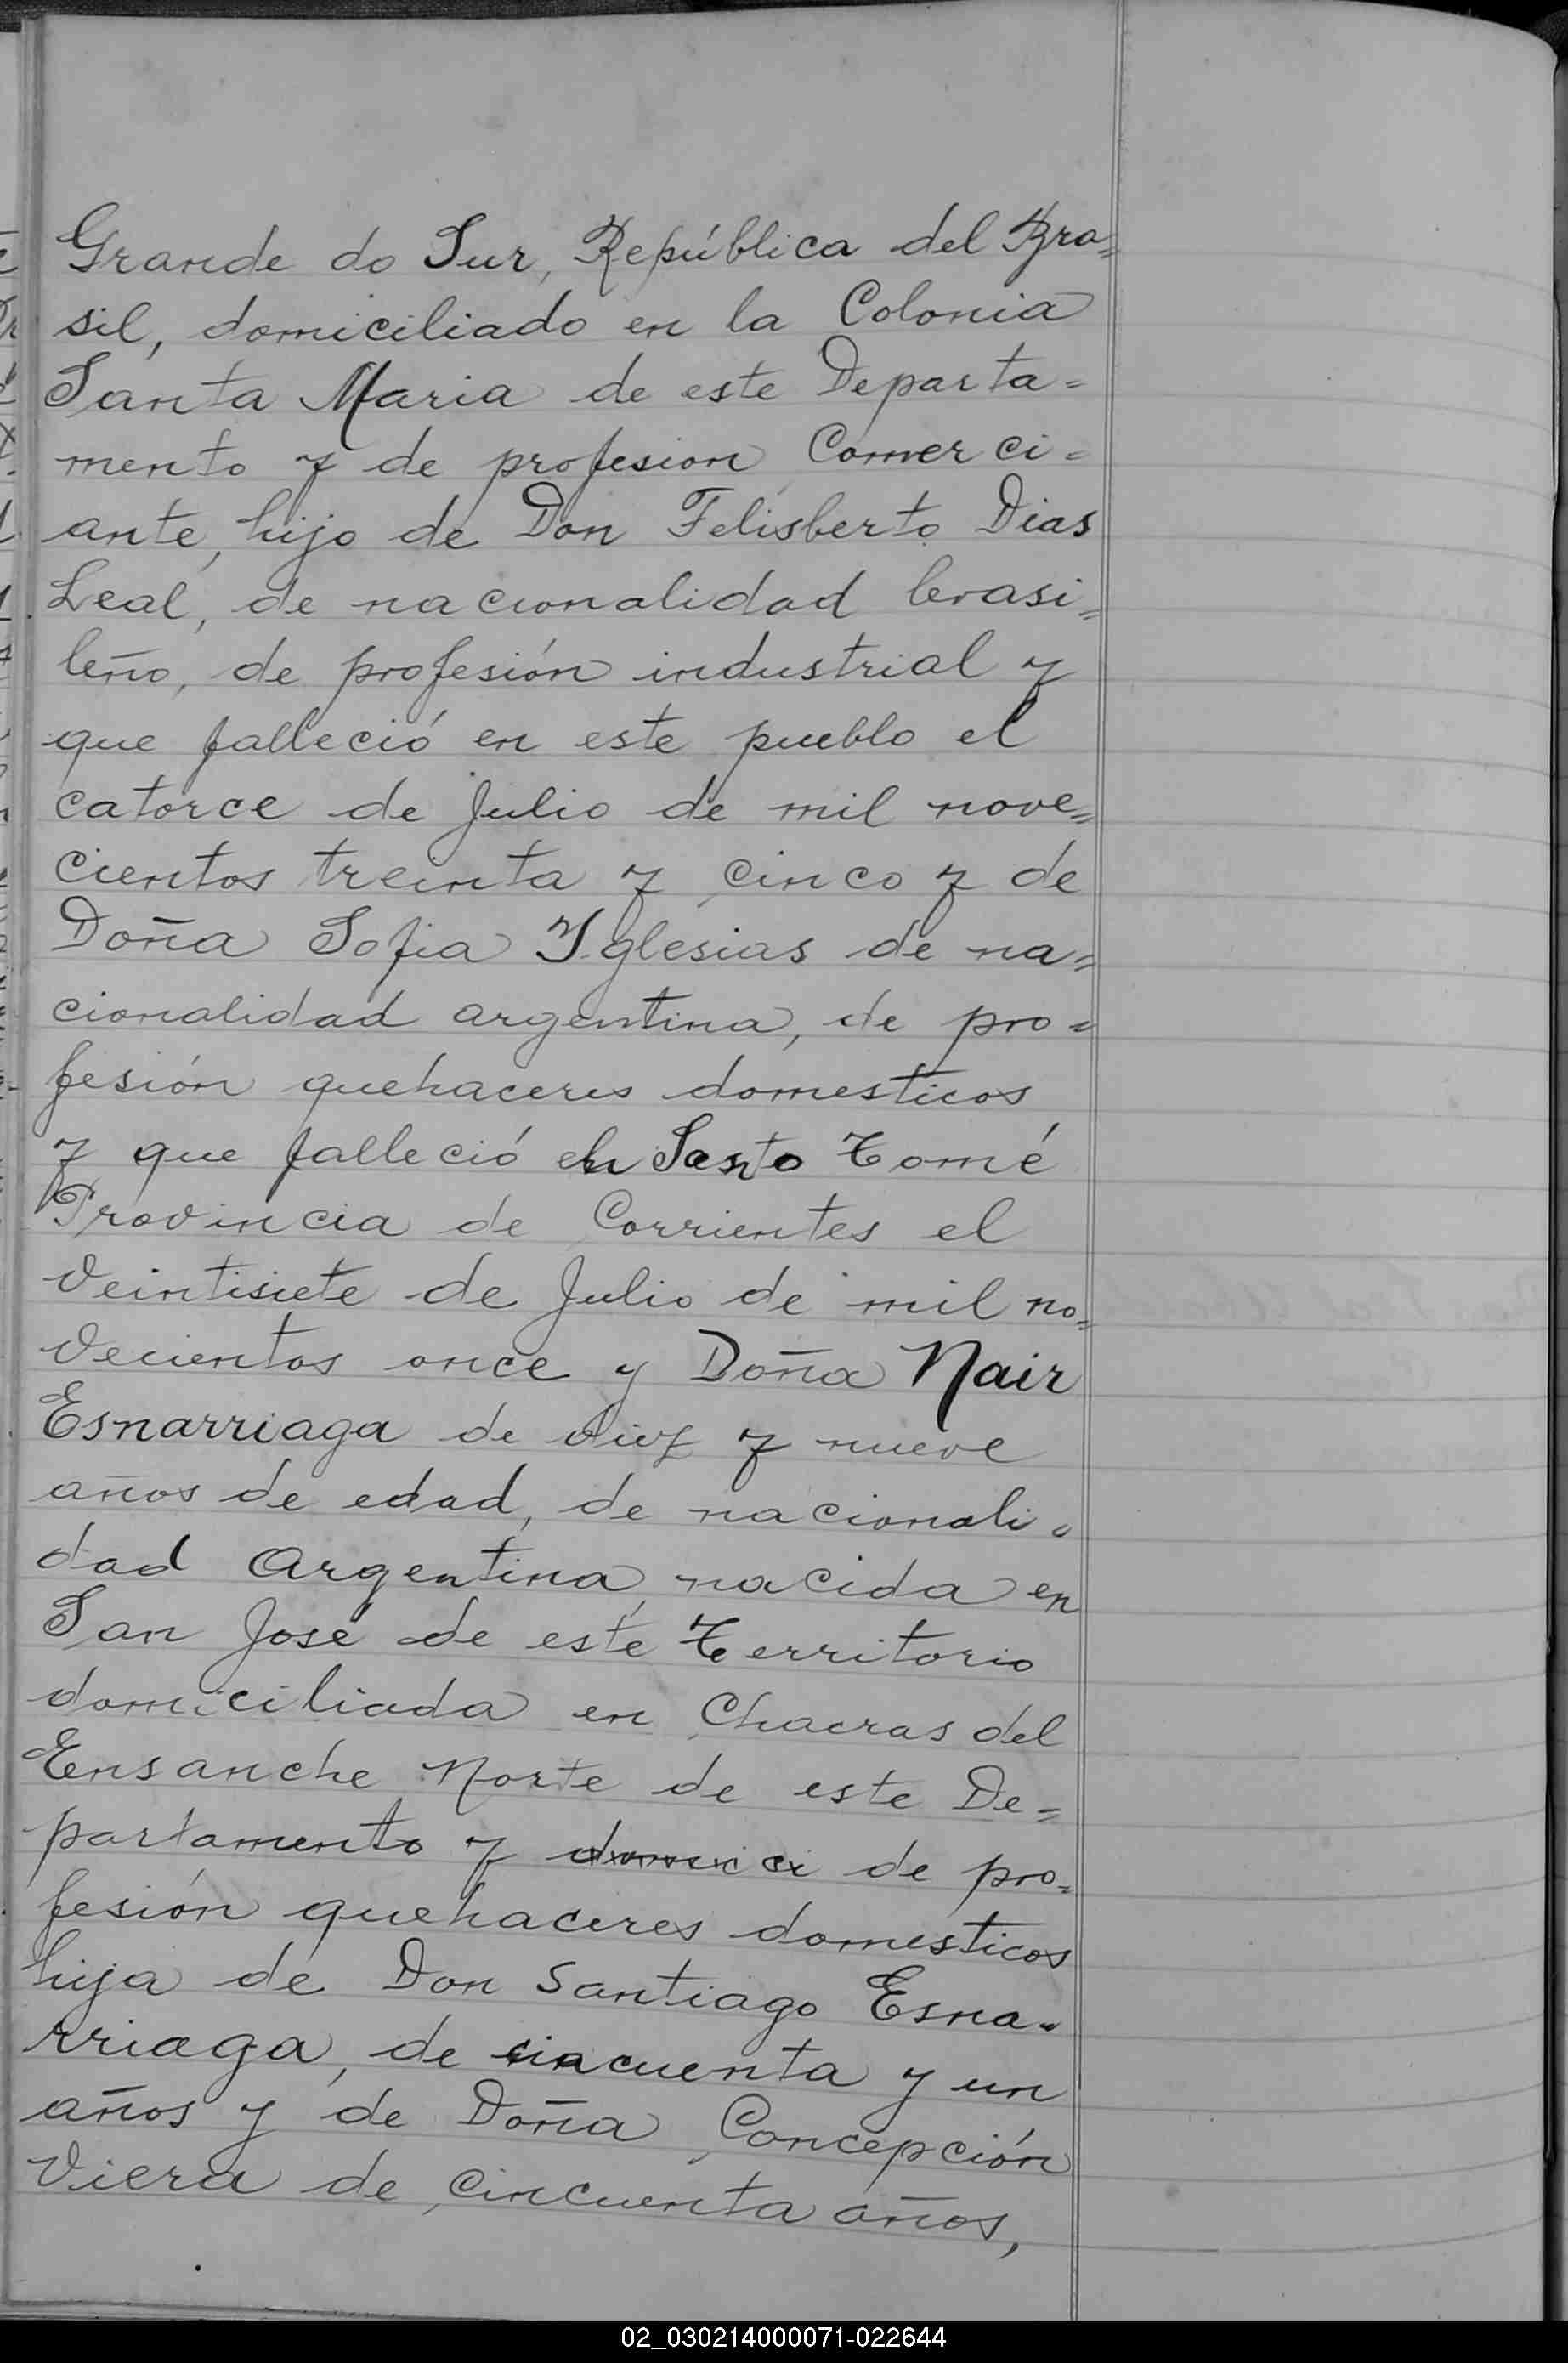 Grande do Sur, República del Bra=
sil, domiciliado en la Colonia
Santa Maria de este Departa=
mento y de profesion Comerci=
ante, hijo de Don Felisberto Dias
Leal, de nacionalidad brasi=
leño, de profesión industrial y
que falleció en este pueblo el
catorce de Julio de mil nove=
cientos treinta y cinco y de
Doña Sofia Yglesias de na=
cionalidad argentina, de pro=
fesión quehaceres domesticos
y que falleció en Santo Tomé
Provincia de Corrientes el
veintisiete de Julio de mil no=
vecientos once y Doña Nair
Esnarriaga de diez y nueve
años de edad, de nacionali=
dad Argentina, nacida en
San José de este Territorio
domiciliada en Chacras del
Ensanche Norte de este De=
partamento y de pro=
fesión quehaceres domesticos
hija de Don Santiago Esna=
rriaga, de cincuenta y un
años y de Doña Concepción
Viera de cincuenta años,
02_030214000071-022644